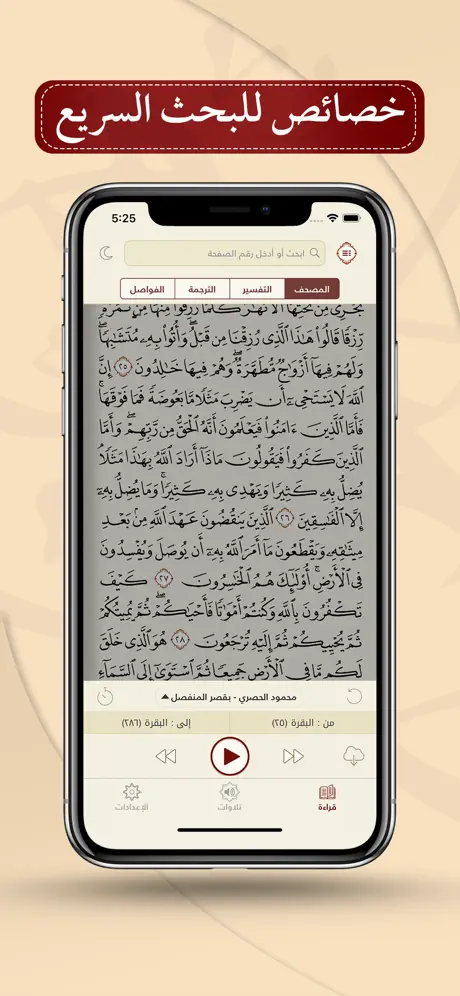 خصائص للبحث السريع
5:25
ابحث أو أدخل رقم الصفحة
المصحف التفسير الترجمة الفواصل
تَجْرِى مِن تَحْتِهَا ٱلْأَنْهَٰرُ كُلَّمَا رُزِقُوا۟ مِنْهَا مِن ثَمَرَةٍ
رِّزْقًا قَالُوا۟ هَٰذَا ٱلَّذِى رُزِقْنَا مِن قَبْلُ وَأُتُوا۟ بِهِۦ مُتَشَٰبِهًا
وَلَهُمْ فِيهَآ أَزْوَٰجٌ مُّطَهَّرَةٌ وَهُمْ فِيهَا خَٰلِدُونَ ٢٥ إِنَّ
ٱللَّهَ لَا يَسْتَحْىِۦٓ أَن يَضْرِبَ مَثَلًا مَّا بَعُوضَةً فَمَا فَوْقَهَا
فَأَمَّا ٱلَّذِينَ ءَامَنُوا۟ فَيَعْلَمُونَ أَنَّهُ ٱلْحَقُّ مِن رَّبِّهِمْ وَأَمَّا
ٱلَّذِينَ كَفَرُوا۟ فَيَقُولُونَ مَاذَآ أَرَادَ ٱللَّهُ بِهَٰذَا مَثَلًا
يُضِلُّ بِهِۦ كَثِيرًا وَيَهْدِى بِهِۦ كَثِيرًا وَمَا يُضِلُّ بِهِۦٓ
إِلَّا ٱلْفَٰسِقِينَ ٢٦ ٱلَّذِينَ يَنقُضُونَ عَهْدَ ٱللَّهِ مِنۢ بَعْدِ
مِيثَٰقِهِۦ وَيَقْطَعُونَ مَآ أَمَرَ ٱللَّهُ بِهِۦٓ أَن يُوصَلَ وَيُفْسِدُونَ
فِى ٱلْأَرْضِ أُو۟لَٰٓئِكَ هُمُ ٱلْخَٰسِرُونَ ٢٧ كَيْفَ
تَكْفُرُونَ بِٱللَّهِ وَكُنتُمْ أَمْوَٰتًا فَأَحْيَٰكُمْ ثُمَّ يُمِيتُكُمْ
ثُمَّ يُحْيِيكُمْ ثُمَّ إِلَيْهِ تُرْجَعُونَ ٢٨ هُوَ ٱلَّذِى خَلَقَ
لَكُم مَّا فِى ٱلْأَرْضِ جَمِيعًا ثُمَّ ٱسْتَوَىٰٓ إِلَى ٱلسَّمَآءِ
محمود الحصري - بقصر المنفصل
من : البقرة (٢٥) إلى : البقرة (٢٨٦)
قراءة تلاوات الإعدادات